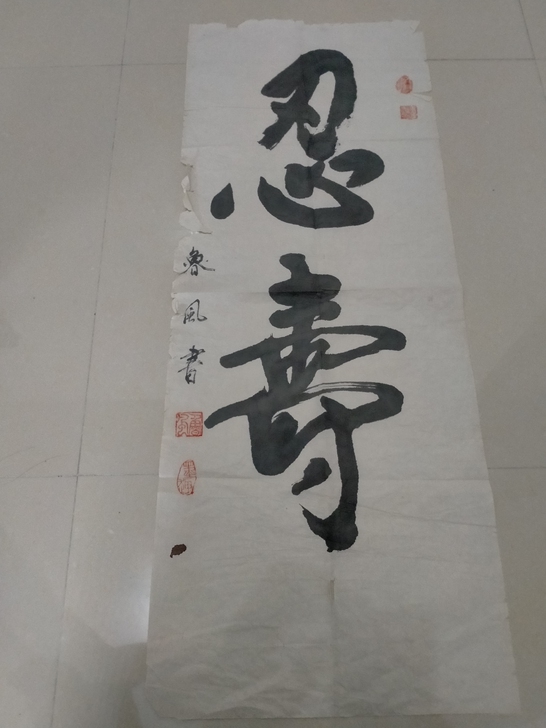 忍壽
魯風書